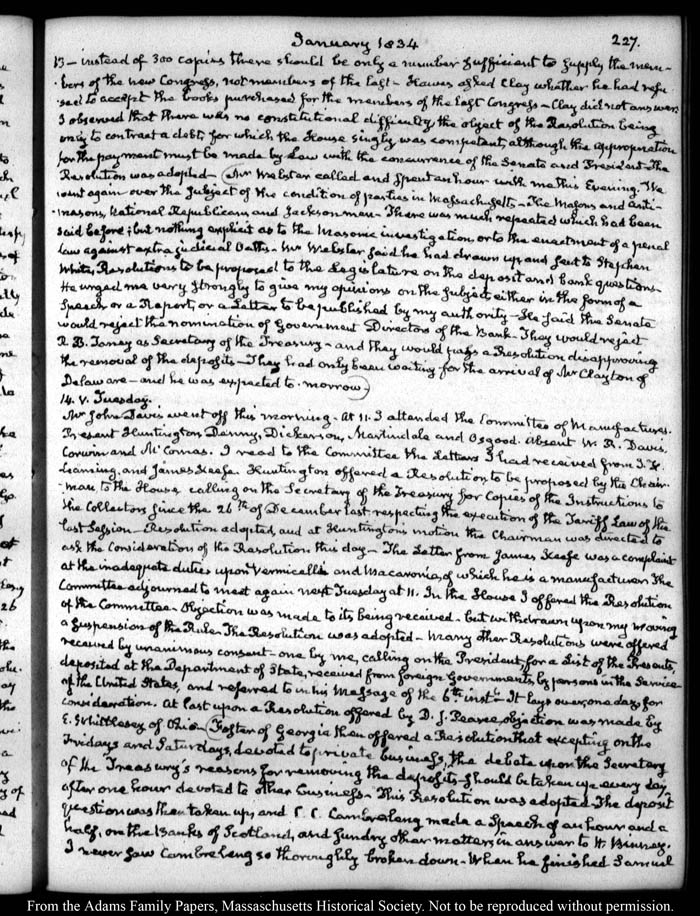 January 1834
227.
13 – instead of 300 copies there should be only a number sufficient to supply the mem-
bers of the new Congress, not members of the last – Hawes asked Clay whether he had refu-
sed to accept the books purchased for the members of the last Congress – Clay did not answer.
I observed that there was no constitutional difficulty, the object of the Resolution being
only to contract a debt, for which the House singly was competent, although the appropriation
for the payment must be made by Law with the concurrence of the Senate and President – The
Resolution was adopted – Mr Webster called and spent an hour with me this Evening. We
went again over the subject of the condition of parties in Massachusetts – The Masons and Anti-
masons, National Republicans and Jackson men – There was much repeated which had been
said before; but nothing explicit as to the Masonic investigation, or to the enactment of a penal
Law against extra judicial Oaths – Mr Webster said he had drawn up and sent to Stephen
White, Resolutions to be proposed to the Legislature on the deposit and bank questions –
He urged me very strongly to give my opinions on the subject, either in the form of a
Speech or a Report, or a Letter to be published by my authority – He said the Senate
would reject the nomination of Government Directors of the Bank – They would reject
R. B. Taney as Secretary of the Treasury – and they would pass a Resolution disapproving
the removal of the deposits – They had only been waiting for the arrival of Mr Clayton of
Delaware – and he was expected to-morrow
14. V. Tuesday.
Mr John Davis went off this morning – At 11. I attended the Committee of Manufactures.
Present Huntington, Denny, Dickerson, Martindale and Osgood. Absent W. R. Davis,
Corwin and McComas. I read to the Committee the Letters I had received from J. F.
Leaming, and James Keefe. Huntington offered a Resolution, to be proposed by the Chair-
man to the House, calling on the Secretary of the Treasury for Copies of the Instructions to
the Collectors since the 26th of December last respecting the execution of the Tariff Law of the
last Session – Resolution adopted, and at Huntington's motion the Chairman was directed to
ask the Consideration of the Resolution this day – The Letter from James Keefe was a complaint
at the inadequate duties upon Vermicelli and Macaronia, of which he is a manufacturer. The
Committee adjourned to meet again next Tuesday at 11. In the House I offered the Resolution
of the Committee – Objection was made to its being received – but withdrawn upon my moving
a suspension of the Rule – The Resolution was adopted – Many other Resolutions were offered
received by unanimous consent – one by me, calling on the President, for a List of the Presents
deposited at the Department of State, received from foreign Governments by persons in the Service
of the United States, and referred to in his Message of the 6th instt – It lays over, one day, for
consideration. At last upon a Resolution offered by D. J. Pearce, objection was made by
E. Whittlesey of Ohio – Foster of Georgia then offered a Resolution that excepting on the
Fridays and Saturdays, devoted to private business, the debate upon the Secretary
of the Treasury's reasons for removing the deposits should be taken up every day
after one hour devoted to other business – This Resolution was adopted – The deposit
question was then taken up, and C. C. Cambreleng made a Speech of an hour and a
half, on the Banks of Scotland, and sundry other matters, in answer to H. Binney.
I never saw Cambreleng so thoroughly broken down – When he finished Samuel
From the Adams Family Papers, Massachusetts Historical Society. Not to be reproduced without permission.